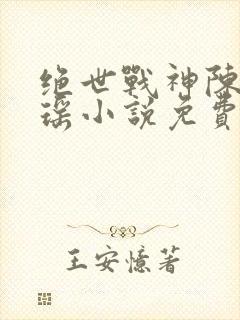 绝世戰神陳
瑶小説免費
王安憶著